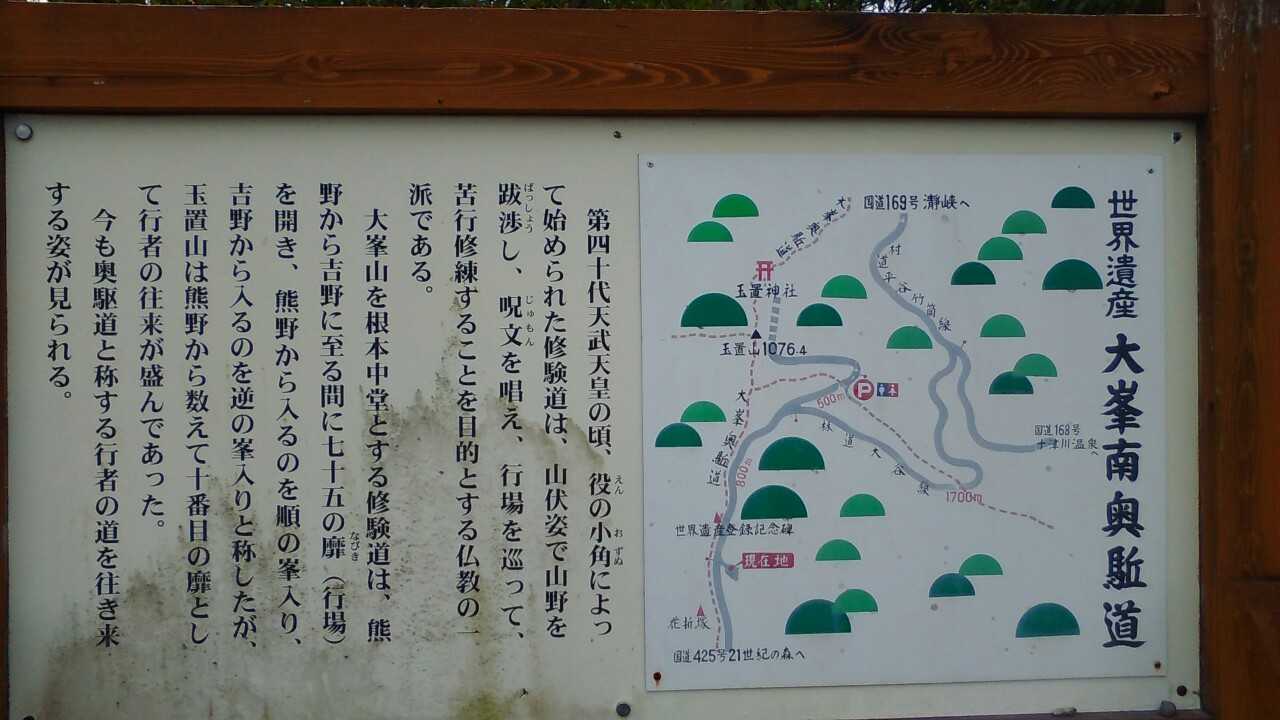 世界遺産 大峯南奥駈道
国道169号 瀞峡へ
大峯奥駈道
村道平谷竹筒線
玉置神社
玉置山1076.4
P
500m
林道大谷線
大峯奥駈道
800m
国道168号
十津川温泉へ
1700m
世界遺産登録記念碑
現在地
花折塚
国道425号21世紀の森へ
第四十代天武天皇の頃、役の小角によっ
えん おずぬ
て始められた修験道は、山伏姿で山野を
跋渉し、呪文を唱え、行場を巡って、
ばっしょう じゅもん
苦行修練することを目的とする仏教の一
派である。
大峯山を根本中堂とする修験道は、熊
野から吉野に至る間に七十五の靡（行場）
なびき
を開き、熊野から入るのを順の峯入り、
吉野から入るのを逆の峯入りと称したが、
玉置山は熊野から数えて十番目の靡とし
て行者の往来が盛んであった。
今も奥駆道と称する行者の道を往き来
する姿が見られる。